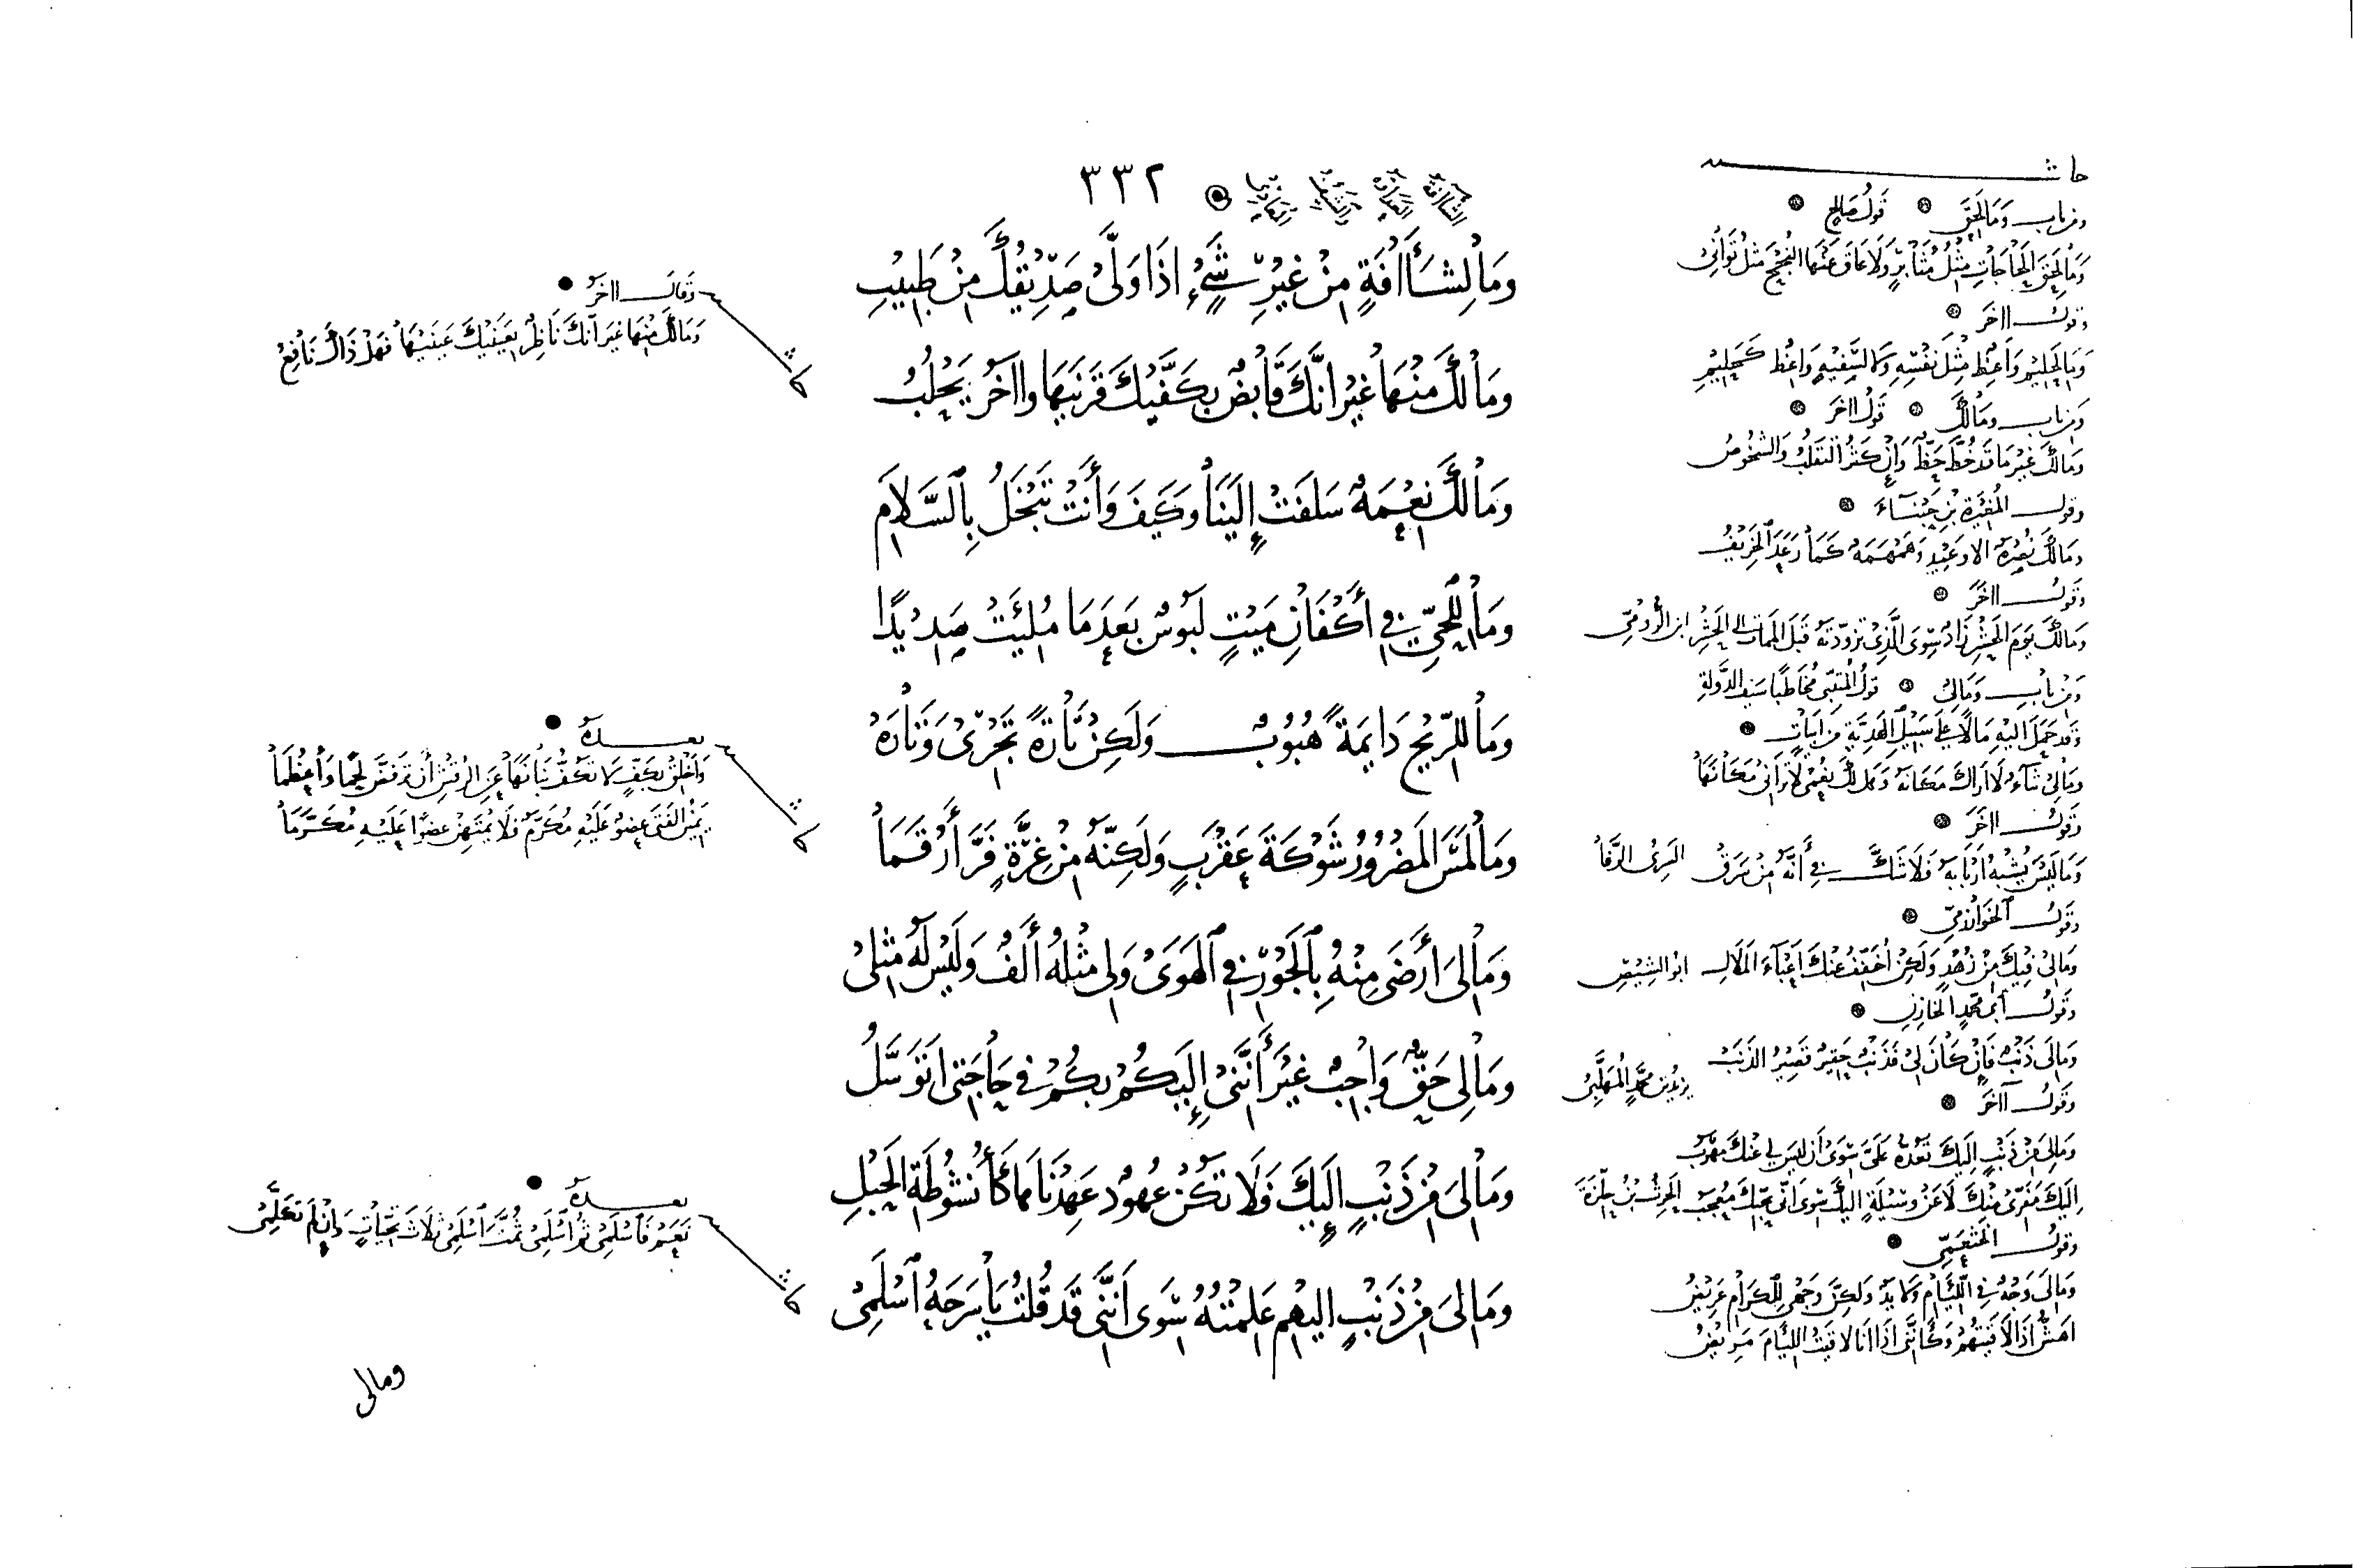 ٣٣٢
وَمَا لِشَاآفَةٍ مِنْ غَيْرِ شَيْءٍ اذَا وَلَّى صَدِيْقُكَ مِنْ طَبِيْبِ
وَمَا لَكَ مِنْهَا غَيْرَ انَّكَ قَابِضٌ بِكَفَّيْكَ قَرْنَيْهَا وااخَرُ يَحْلِبُ
وَمَا لَكَ نِعْمَةٌ سَلَفَتْ إِلَيْنَا وَكَيْفَ وَأَنْتَ تَبْخَلُ بِالسَّلَامِ
وَمَا لِلْحَيِّ فِي أَكْفَانِ مَيْتٍ لَبُوْسٌ بَعْدَمَا مُلِئَتْ صَدِيْدًا
وَمَا لِلرِّيْحِ دَايمَةً هُبُوْبٌ وَلَكِنْ تَارَةً تَجْرِىْ وَتَارَهْ
وَمَا لَمَسَ الْمَضْرُوْرُ شَوْكَةَ عَقْرَبٍ وَلَكِنَّهُ مِنْ غِرَّةٍ فَرَّ أَرْقَمَا
وَمَا لِىَ ارْضَى مِنْهُ بِالْجَوْرِ فِي الْهَوَىْ وَلِى مِثْلُهُ أَلْفٌ وَلَيْسَ لَهُ مِثْلِىْ
وَمَا لِى حَقٌّ وَاجِبٌ غَيْرَ أَنَّنِىْ إِلَيْكُمْ بِكُمْ فِي حَاجَتِى اتَوَسَّلُ
وَمَا لِىَ مِنْ ذَنْبٍ إِلَيْكَ فَلَا تَكُنْ عُهُوْدُ عَهِدْنَاهَا كَأُنْشُوْطَةِ الْحَبْلِ
وَمَا لِىَ مِنْ ذَنْبٍ اليْهِمْ عَلِمْتُهُ سِوَى أَنَّنِى قَدْ قُلْتُ يَا سَرْحَةُ اسْلَمِىْ
ومالى
حاشـ
ومن باب وَمَا لَحِقَ قَوْلُ صَالِحٍ
وَمَا لَحِقَ الْحَاجَاتِ مِثْلُ مُثَابِرٍ وَلَا عَاقَ عَنْهَا النُّجْحَ مِثْلُ تَوَانِىْ
وقول ااخَرَ
وَمَا لِحَلِيْمٍ وَاعِظٌ مِثْلُ نَفْسِهِ وَلا لِسَفِيْهٍ وَاعِظٌ كَحَلِيْمِ
وَمن باب ومَا لَكَ قَوْلُ ااخَرَ
وَمَا لَكَ غَيْرَ مَا قَدْ خُطَّ حَظٌّ وَانْ كَثُرَ التَقَلُّبُ وَالشُّخُوْصُ
وقول الْمُغِيْرَةِ بْنِ حَبْنَاءَ
وقَوْلُ ااخَرَ
وَمَا لَكَ يَوْمَ الْحَشْرِ زَادٌ سِوَى الَّذِىْ تَزَوَّدْتَهُ قَبْلَ الْمَمَاتِ الى الْحَشْرِ ابن الرُّومِىِّ
وَمِنْ بَابِ وَمَا لِىْ قَوْلُ الْمُتَنَبِّى مُخَاطِبًا سَيْفَ الدَّوْلَةِ
وَقَد حَمَلَ اليْهِ مَالًا عَلَى سَبِيْلِ الْهَدِيَّةِ مِنْ ابْيَاتٍ
وَقَوْلُ ااخَرَ
وَمَا لَيْسَ يُشْبِهُ ارْبَابَهُ فَلَا شَكَّ فِي أَنَّهُ مِنْ سَرَقْ السَّرِىُّ الرَّفَّا
وَقَوْلُ الْخُوَارَزْمِىِّ
وَمَا لِىْ فِيْكَ مِنْ زُهْدٍ وَلَكِنْ اخَفِّفُ عَنْكَ اعْبَاءَ الْمَلَالِ ابو الشِّيْصِ
وَقَوْلُ ابى مُحَمَّدٍ الخَازِنِ
وَمَا لِىَ ذَنْبٌ فَانْ كَانَ لِىْ فَذَنْبٌ حَقِيْرٌ قَصِيْرُ الذَّنَبْ يزيد بن محمدٍ المهلَّبِىُّ
وَقَوْلُ آخَرَ
وَمَا لِىَ مِنْ ذَنْبٍ الَيْكَ تَعُدُّهُ عَلَىَّ سِوَىْ أن لَيْسَ لِى عَنْكَ مَهْرَبُ
الَيْكَ مَفَرِّى مِنْكَ لَا عَنْ وَسِيْلَةٍ الَيْكَ سِوَى انِّى بِحُبِّكَ مُعْجَبُ الحَرثُ بْنُ حِلِّزَةَ
وَقَوْلُ الْخَثْعَمِىِّ
وَمَا لِىَ وَجْهٌ فِى اللِّئَامِ وَلَا يَدٌ وَلَكِنَّ وَجْهِى لِلْكِرَامِ عَرِيْضُ
اهَشُّ اذَا لَاقَيْتُهُمْ وَكَأَنَّنِى اذَا انَا لَاقَيْتُ اللِّئَامَ مَرِيْضُ
وَقَالَ ااخَرُ
وَمَا لَكَ مِنْهَا غَيْرَ أنَّكَ نَاظِرٌ بِعَيْنَيْكَ عَيْنَيْهَا فَهَلْ ذَاكَ نَافِعُ
بعـــدهُ
وَأَخْلِقْ بِكَفٍّ لا تَكُفُّ بَنَانَهَا عَنِ الرُّقْشِ أَنْ تَرْفَضَّ لَحْمًا وَأَعْظُمَا
يَمِيْنُ الفَتَى عِضْوٌ عَلَيْهِ مُكَرَّمٌ فَلَا يَمْتَهِنْ عضْوًا عَلَيْهِ مُكَرَّمَا
بعـــدهُ
نَعَمْ فَاسْلَمِىْ ثُمَّ اسْلَمِىْ ثُمَّتَ اسْلَمِىْ ثَلَاثَ تَحِيَّاتٍ وَانْ لَمْ تَكَلَّمِىْ